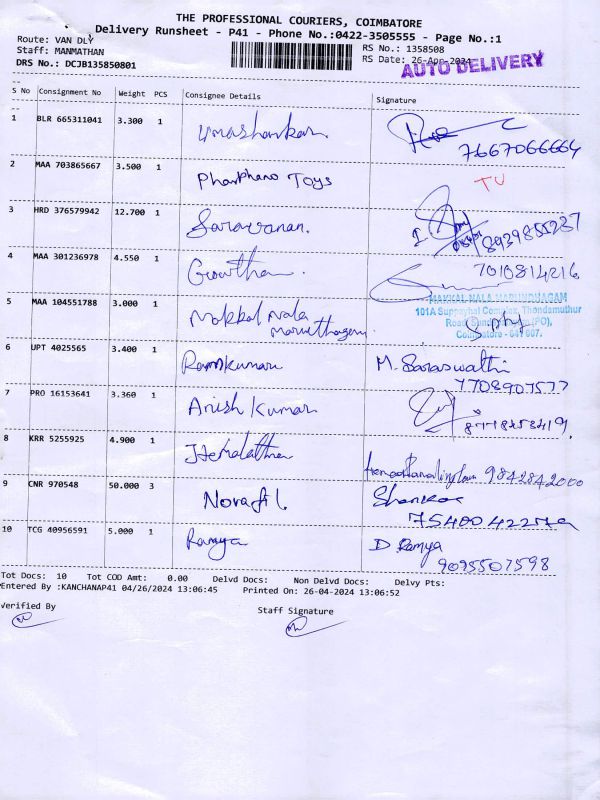 THE PROFESSIONAL COURIERS, COIMBATORE
Delivery Runsheet - P41 - Phone No.:0422-3505555 - Page No.:1
Route: VAN DLY
RS No.: 1358508
Staff: MANMATHAN
RS Date: 26-Apr-2024
DRS No.: DCJB135850801
AUTO DELIVERY
S No Consignment No Weight PCS Consignee Details Signature
1 BLR 665311041 3.300 1 Umashankar.
7667066664
2 MAA 703865667 3.500 1 Phanphano Toys TU
3 HRD 376579942 12.700 1 Saravanan. 8939855287
4 MAA 301236978 4.550 1 Gowtham. 7010814216
5 MAA 104551788 3.000 1 Makkal Nala Marunthagam
MAKKAL NALA MARUNDHAGAM
101A Suppayhal Complex, Thondamuthur
Road, (PO),
Coimbatore - 641 007.
6 UPT 4025565 3.400 1 Ramkumar M. Saraswathi
7708907577
7 PRO 16153641 3.360 1 Anish Kumar
8 KRR 5255925 4.900 1 Hemalatha 9842842000
9 CNR 970548 50.000 3 Shankar
10 TCG 40956591 5.000 1 Ramya D Ramya
9095507598
Tot Docs: 10 Tot COD Amt: 0.00 Delvd Docs: Non Delvd Docs: Delvy Pts:
Entered By :KANCHANAP41 04/26/2024 13:06:45 Printed On: 26-04-2024 13:06:52
Verified By Staff Signature